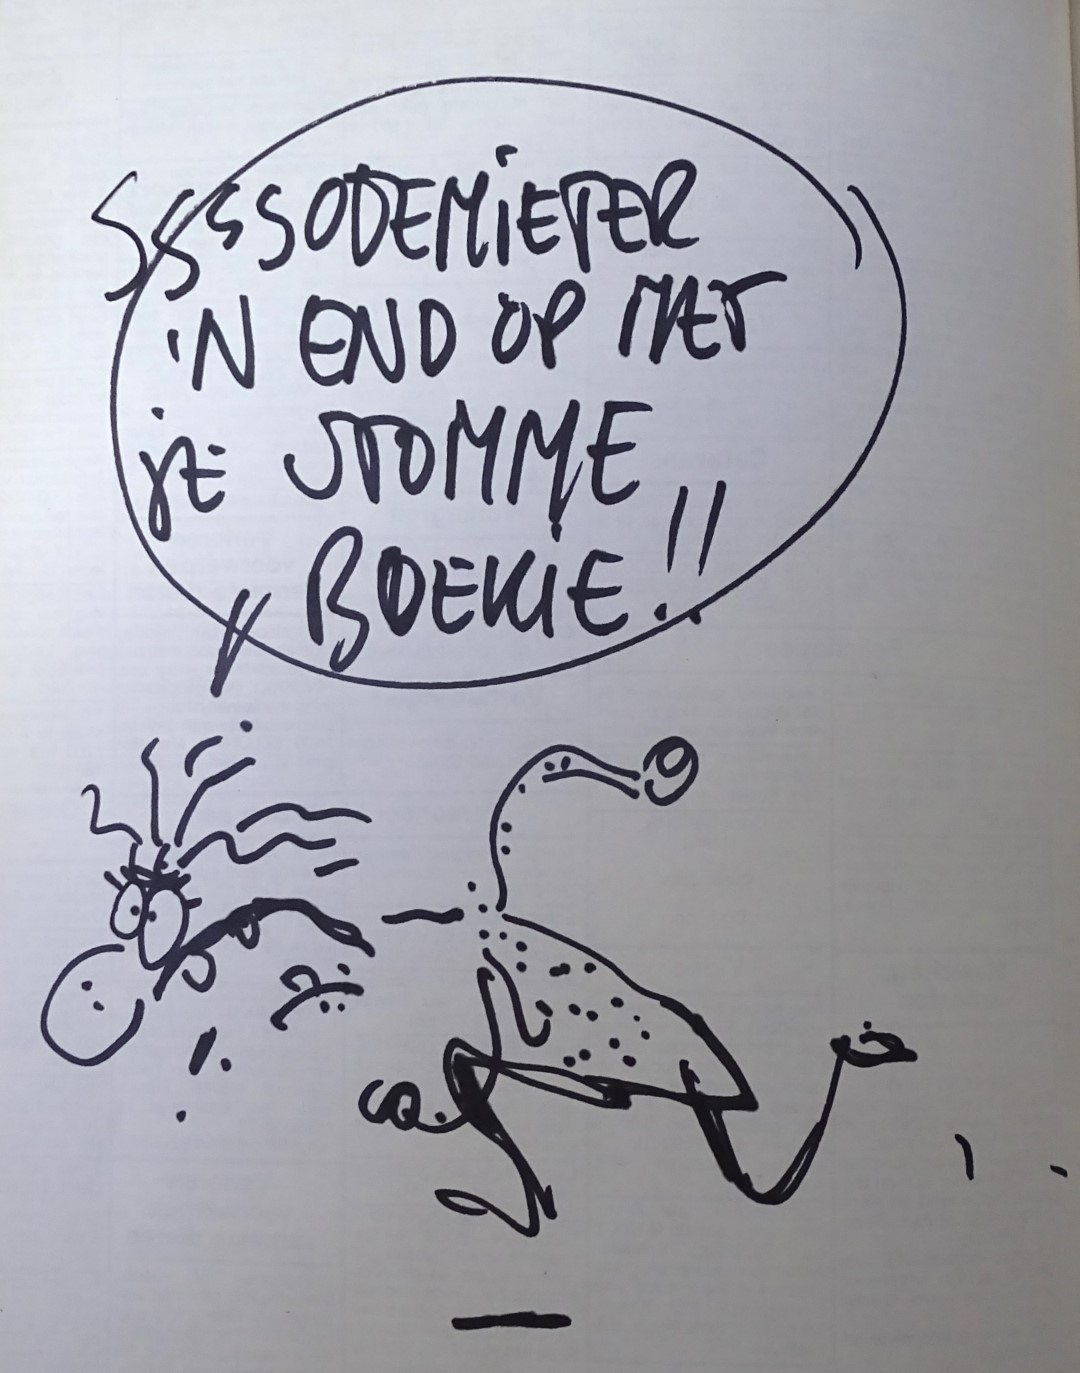 SSSSODEMiETER
'N END OP MET
je STOMME
BOEKIE!!